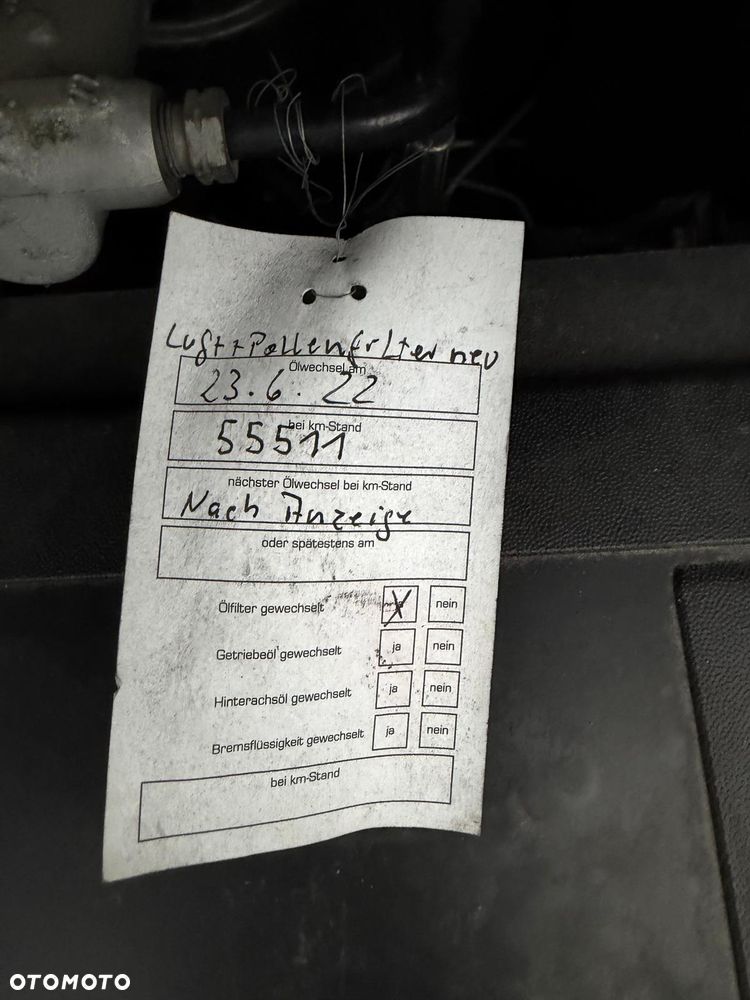 Luft + Pollenfilter neu
Ölwechsel am
23.6.22
bei km-Stand
55511
nächster Ölwechsel bei km-Stand
Nach Anzeige
oder spätestens am
Ölfilter gewechselt X nein
Getriebeöl gewechselt ja nein
Hinterachsöl gewechselt ja nein
Bremsflüssigkeit gewechselt ja nein
bei km-Stand
OTOMOTO